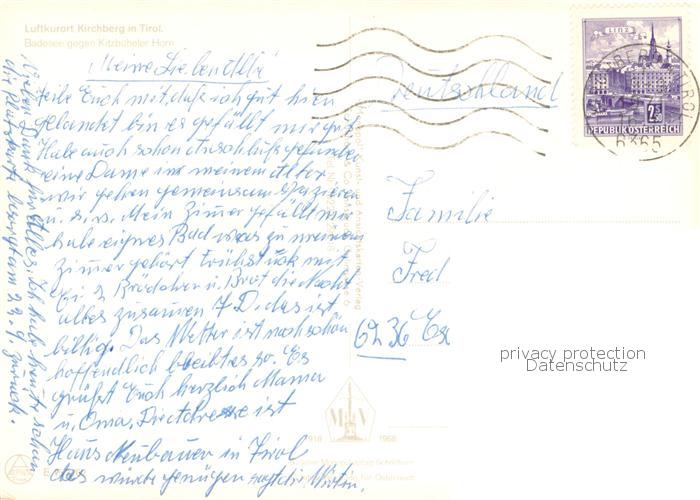 Luftkurort Kirchberg in Tirol.
Badesee gegen Kitzbüheler Horn
Meine Lieben Alle!
teile Euch mit, daß ich gut hier
gelandet bin es gefällt mir gut
Habe auch schon Anschluß gefunden
eine Dame in meinem Alter
wir gehen gemeinsam spazieren
u. s. w. Mein Zimmer gefällt mir
habe eignes Bad was zu meinem
Zimmer gehört Frühstück mit
Ei 2 Brödchen u. Brot die Nacht
alles zusammen 7 D. das ist
billig. Das Wetter ist noch schön
hoffendlich bleibt es so. Es
grüßt Euch herzlich Mama
u. Oma. Die Adresse ist
Hans Neubauer in Tirol
das würde genügen sagt die Wirtin.
Vielen Dank für Alles. Ich habe heute schon
die besorgt am 22. 9. zurück.
Deutschland
Familie
Fred
6236 Es
LINZ
2.50
REPUBLIK ÖSTERREICH
6365
1918 1968
privacy protection
Datenschutz